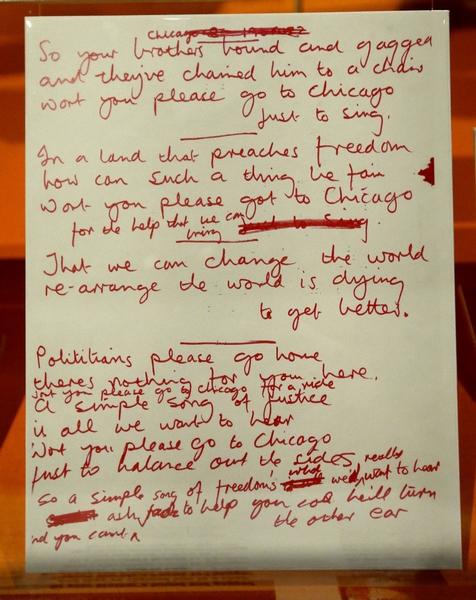 Chicago
So your brothers bound and gagged
and they've chained him to a chair
wont you please go to Chicago
just to sing.
In a land that preaches freedom
how can such a thing be fair
wont you please got to Chicago
for the help that we can
bring
That we can change the world
re-arrange the world is dying
to get better.
Polititians please go home
theres nothing for you here.
wont you please go to chicago for a ride
A simple song of justice
is all we want to hear
Wont you please go to Chicago
Just to balance out the sides
really
so a simple song of freedom is what we want to hear
ask to help you cos he'll turn
the other ear
nd you cant